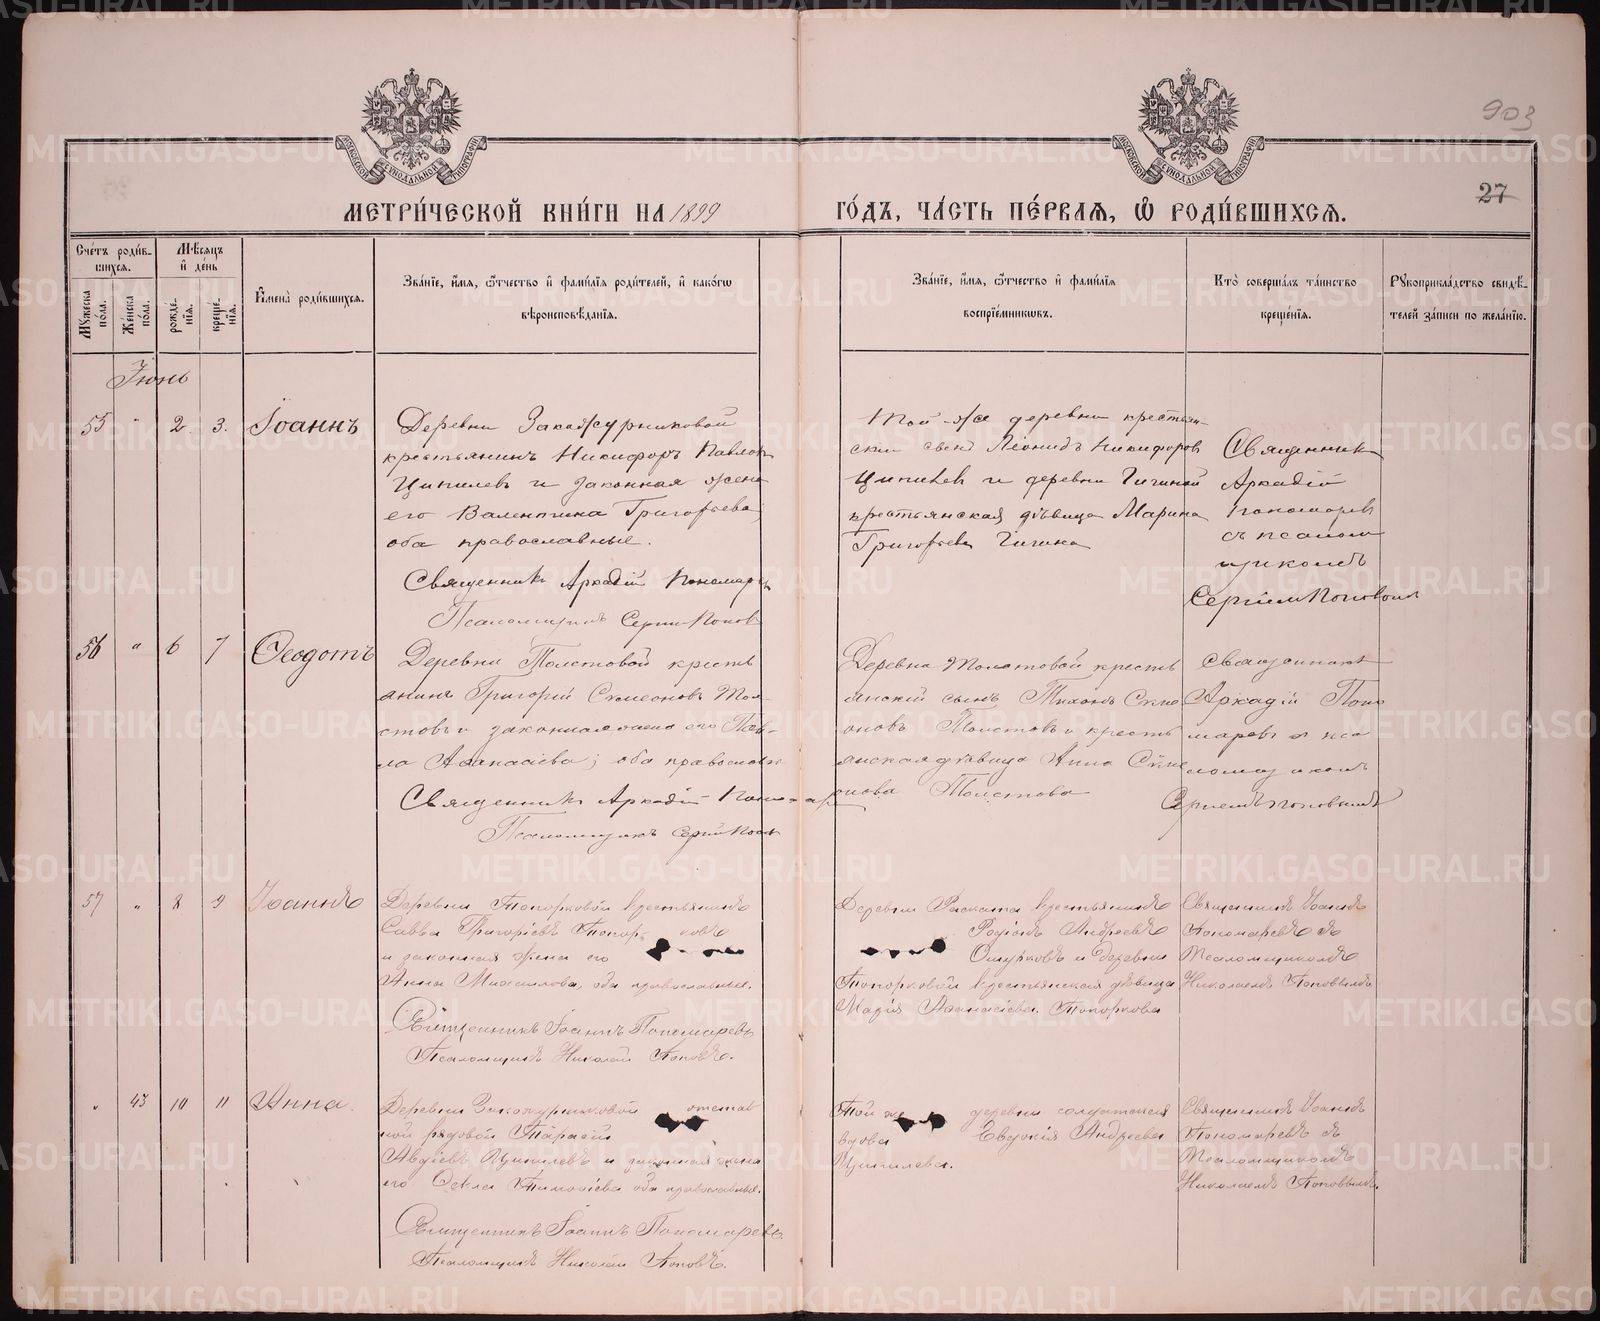 903
27
МОСКОВСКОЙ СѴНОДАЛЬНОЙ ТИПОГРАФІИ
МОСКОВСКОЙ СѴНОДАЛЬНОЙ ТИПОГРАФІИ
МЕТРИ́ЧЕСКОЙ КНИ́ГИ НА 1899 ГО́ДЪ, ЧА́СТЬ ПЕ́РВАЯ, Ѽ РОДИ́ВШИХСЯ.
Сче́тъ роди́в-
шихся.
Мꙋжеска по́ла.
Же́нска по́ла.
Мѣ́сяцъ
и҆ де́нь
рожде́нїя.
креще́нїя.
И҆мена̀ роди́вшихся.
Зва́нїе, и҆́мя, ѻ҆́тчество и҆ фами́лїя роди́телей, и҆ како́гѡ
вѣроисповѣ́данїя.
Зва́нїе, и҆́мя, ѻ҆́тчество и҆ фами́лїя
воспрїе́мникѡвъ.
Кто̀ соверша́лъ та́инство
креще́нїя.
Рꙋкоприкла́дство свидѣ́-
телей за́писи по жела́нїю.
Іюнь
55 " 2. 3. Іоаннъ
Деревни Закожурниковой
крестьянинъ Никифоръ Павлов
Ципилевъ и законная жена
его Валентина Григорьева,
оба православные.
Священникъ Аркадій Пономарев
Псаломщикъ Сергій Попов
Той-же деревни крестьян-
ский сын Леонидъ Никифоров
Ципилев и деревни Гигиной
крестьянская дѣвица Марина
Григорьева Гигина
Священникъ
Аркадій
Пономарев
съ псалом
щикомъ
Сергіем Поповым
56 " 6 7 Ѳеодотъ
Деревни Толстовой кресть
янинъ Григорій Симеоновъ Тол-
стовъ и законная жена его Пав-
ла Аѳанасіева; оба православн
Священникъ Аркадій Пономар
Псаломщикъ Сергій Попов
Деревни Толстовой кресть
янскій сынъ Тихонъ Симе
оновъ Толстовъ и кресть
янская дѣвица Анна Симе
онова Толстова
Священникъ
Аркадій Поно
маревъ съ пса
ломщикомъ
Сергіемъ Поповымъ
57 " 8 9 Іоаннъ
Деревни Топорковой крестьянинъ
Савва Григоріевъ Топор- ковъ
и законная жена его
Анна Михаилова, оба православные.
Священникъ Іоаннъ Пономаревъ
Псаломщикъ Николай Поповъ.
Деревни Раската крестьянинъ
Родіонъ Андреевъ
Ошурковъ и деревни
Топорковой крестьянская дѣвица
Марія Аѳанасіева Топоркова
Священникъ Іоаннъ
Пономаревъ съ
Псаломщикомъ
Николаемъ Поповымъ
" 43 10 11 Анна.
Деревни Закожурниковой отстав
ной рядовой Тарасій
Авдіевъ Ципилевъ и законная жена
его Ѳекла Тимоѳіева оба православные.
Священникъ Іоаннъ Пономаревъ
Псаломщикъ Николай Поповъ.
Той же деревни солдатская
вдова Евдокія Андреева
Ципилева.
Священникъ Іоаннъ
Пономаревъ съ
Псаломщикомъ
Николаемъ Поповымъ.
METRIKI.GASO-URAL.RU